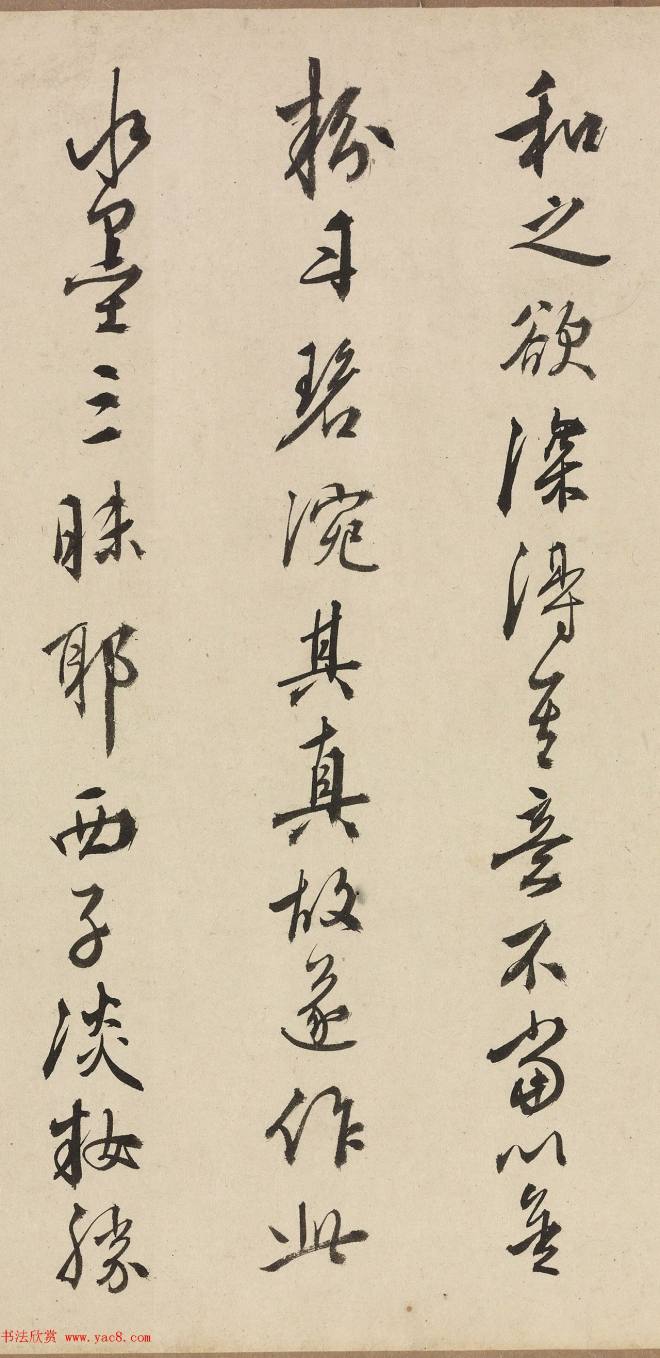 和之欲深得其意不當以無
粉丹碧涴其真故遂作此
水墨三昧耶西子淡妝勝
书法欣赏 www.yac8.com